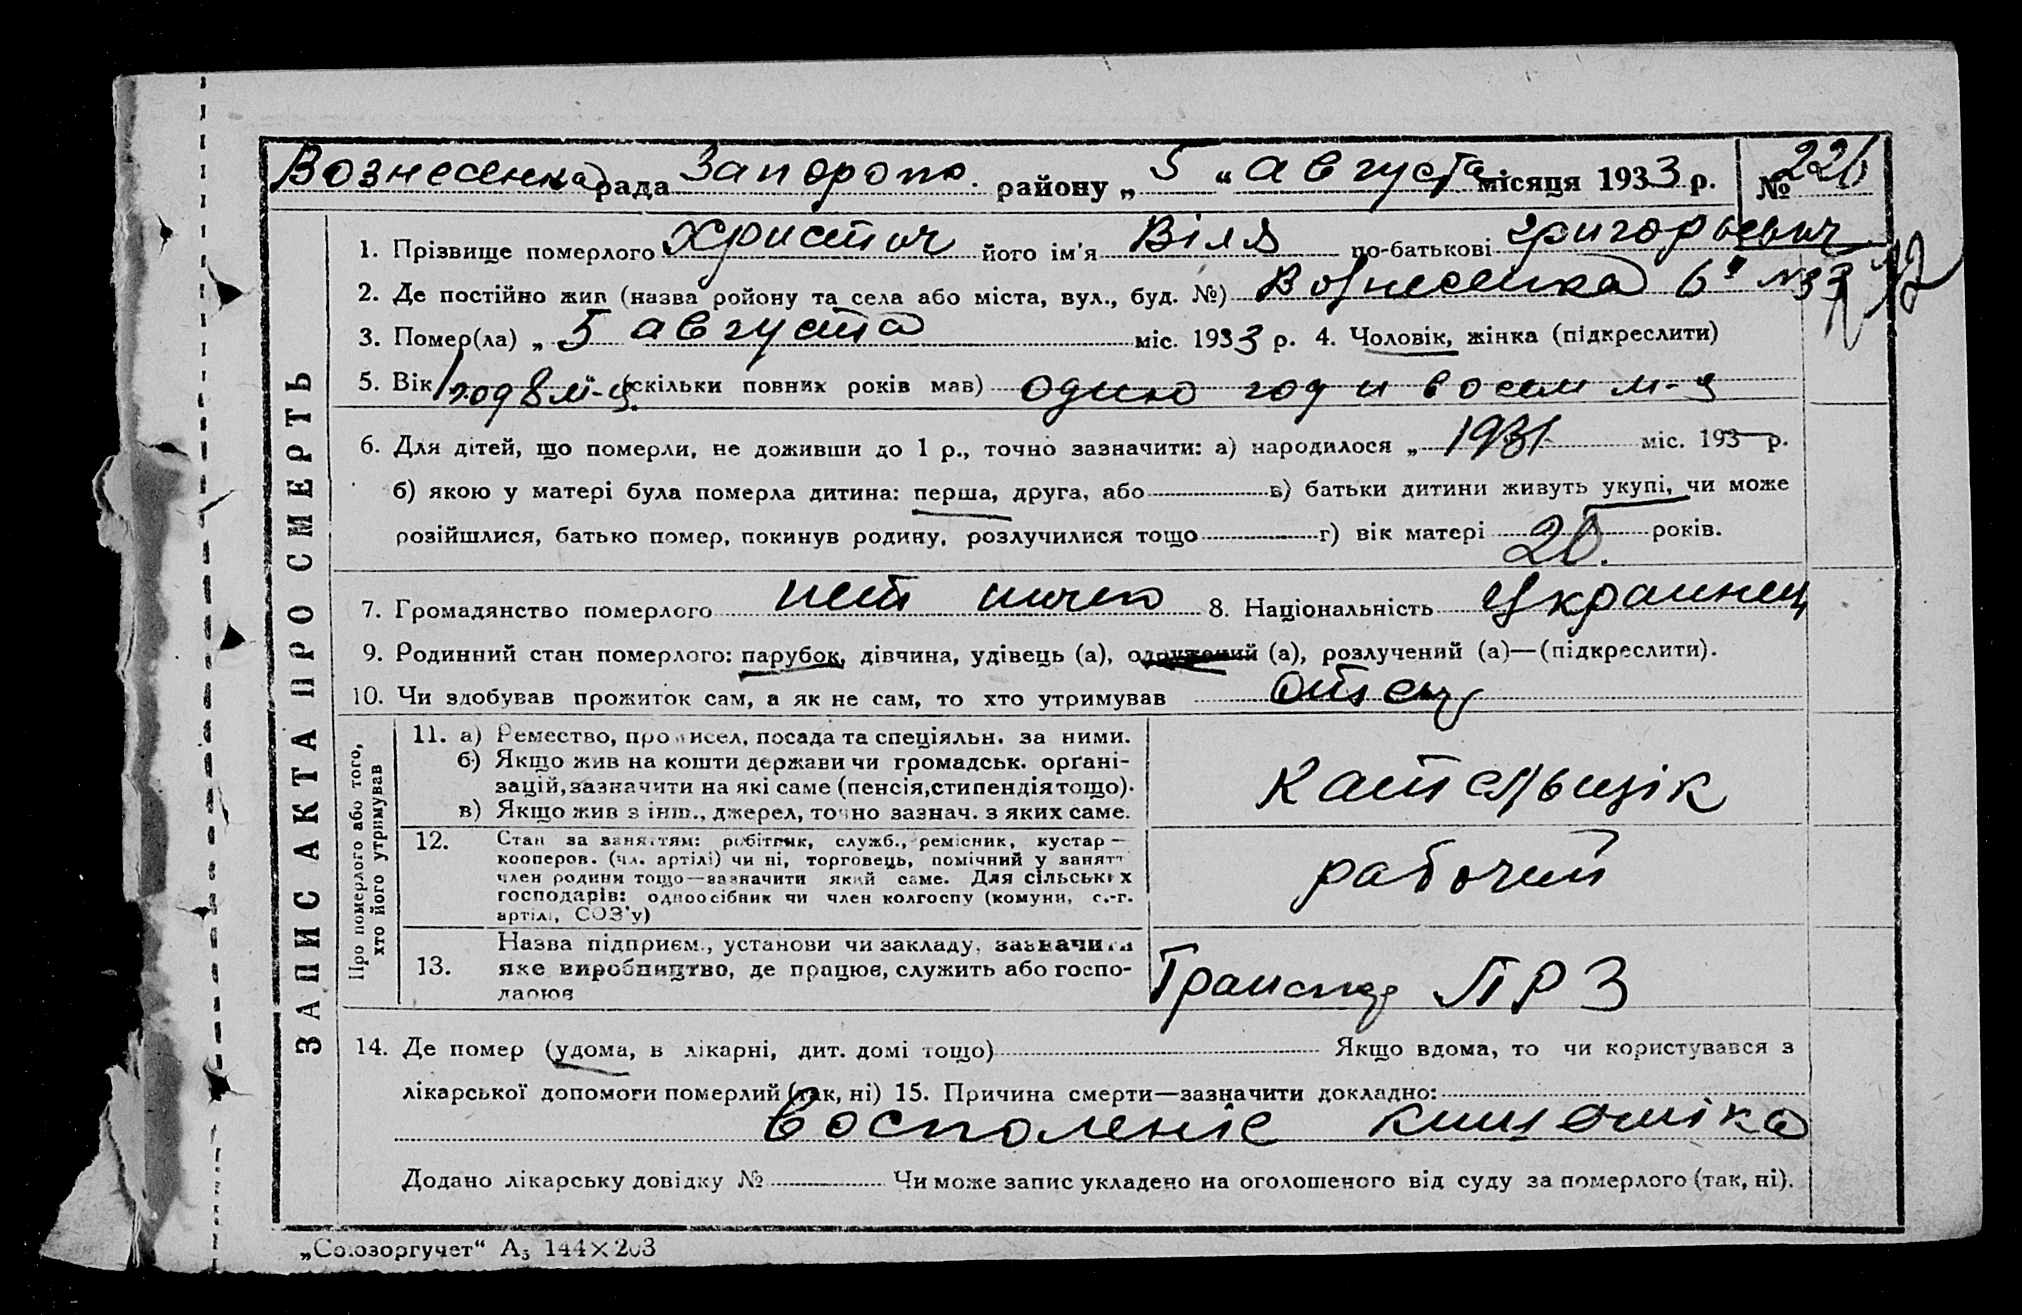 Вознесенка рада Запорож. району „ 5 “ августа місяця 1933 р. № 226
ЗАПИС АКТА ПРО СМЕРТЬ
1. Прізвище померлого Христич його ім'я Віля по-батькові Григорьевич
2. Де постійно жив (назва ройону та села або міста, вул., буд. №) Вознесенка 6й №33
3. Помер(ла) „ 5 августа міс. 1933 р. 4. Чоловік, жінка (підкреслити)
5. Вік 1 год 8 м-ц. (скільки повних років мав) один год и восем м-ц
6. Для дітей, що померли, не доживши до 1 р., точно зазначити: а) народилося „ 1931 міс. 193 р.
б) якою у матері була померла дитина: перша, друга, або в) батьки дитини живуть укупі, чи може
розійшлися, батько помер, покинув родину, розлучилися тощо г) вік матері 20. років.
7. Громадянство померлого 8. Національність Украинец
9. Родинний стан померлого: парубок, дівчина, удівець (а), одружений (а), розлучений (а)—(підкреслити).
10. Чи здобував прожиток сам, а як не сам, то хто утримував отец
Про померлого або того, хто його утримував
11. а) Ремество, промисел, посада та спеціяльн. за ними.
б) Якщо жив на кошти держави чи громадськ. орґані-
зацій, зазначити на які саме (пенсія, стипендія тощо).
в) Якщо жив з інш., джерел, точно зазнач. з яких саме.
кательщік
12. Стан за заняттям: робітник, служб., ремісник, кустар—
кооперов. (чл. артілі) чи ні, торговець, помічний у занятт
член родини тощо—зазначити який саме. Для сільських
господарів: одноосібник чи член колгоспу (комуни, с.-г.
артілі, СОЗ'у)
рабочий
13. Назва підприєм., установи чи закладу, зазначити
яке виробництво, де працює, служить або госпо-
дарює
ПРЗ
14. Де помер (удома, в лікарні, дит. домі тощо) Якщо вдома, то чи користувався з
лікарської допомоги померлий (так, ні) 15. Причина смерти—зазначити докладно:
восполеніе кишечніка
Додано лікарську довідку № Чи може запис укладено на оголошеного від суду за померлого (так, ні).
„Союзоргучет“ А5 144×203